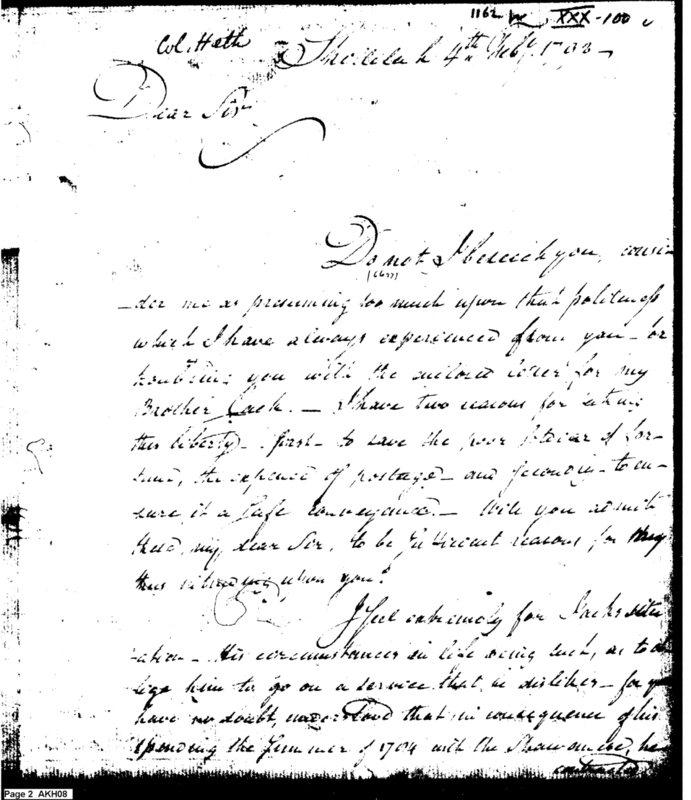 1162 XXX-100
Col. Hath
4th Feby.
Dear Sir
Do not, I beseech you, consi-
-der me as presuming too much upon that politeness
which I have always experienced from you - for
troubling you with the enclosed letter for my
Brother Jack. - I have two reasons for taking
this liberty - first - to save the poor of for-
tune, the expence of postage - and secondly - to en-
sure it a safe conveyance. - Will you admit
these, my dear Sir, to be sufficient reasons for my
thus intruding upon you?
I feel extremely for Jacks situ
-ation - His circumstances in life being such, as to ob
lige him to go on a service that he dislikes - for you
have no doubt, understood that in consequence of his
spending the Summer of 1784 with the Shawanese, he
contracted
Page 2 AKH08